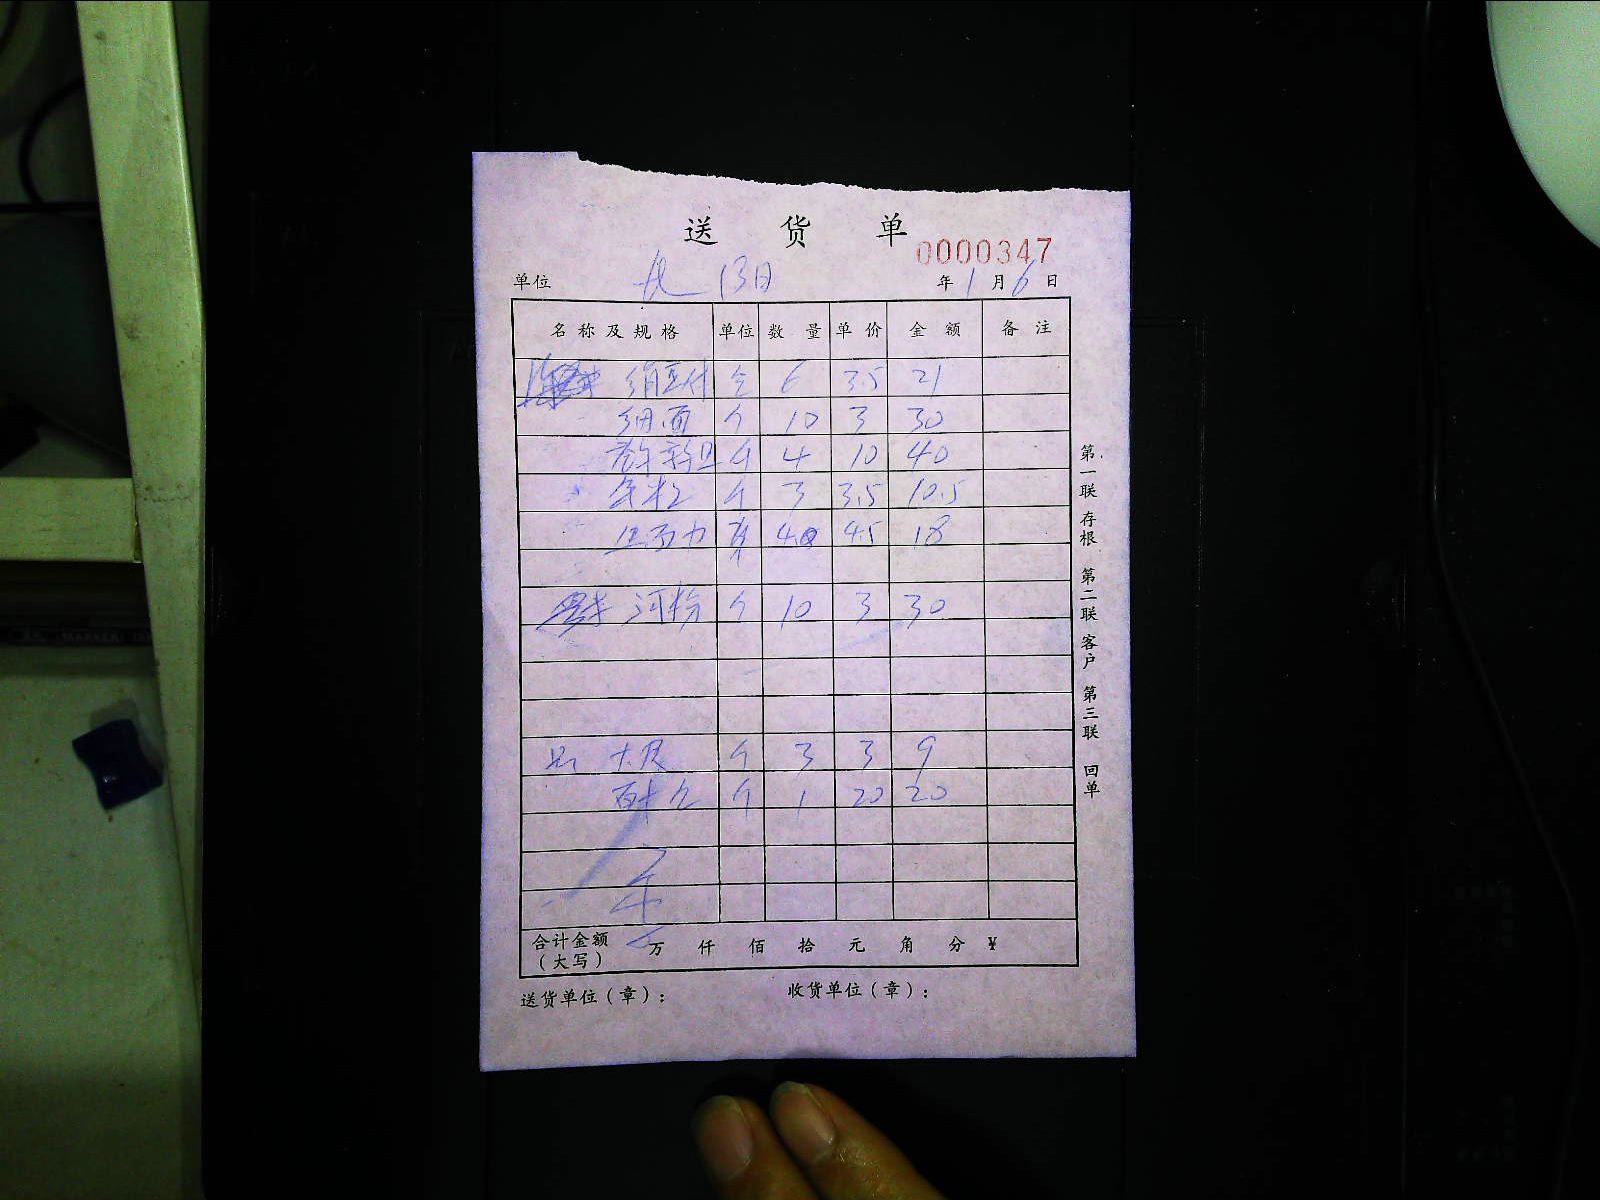 送 货 单
0000347
单位 13日 年1月6日
名称及规格 单位 数量 单价 金额 备注
绢豆付 个 6 3.5 21
细面 个 10 3 30
个 4 10 40
年 个 3 3.5 10.5
4 4.5 18
河粉 个 10 3 30
个 3 3 9
个 1 20 20
合计金额（大写） 万 仟 佰 拾 元 角 分 ¥
送货单位（章）： 收货单位（章）：
第一联 存根 第二联 客户 第三联 回单